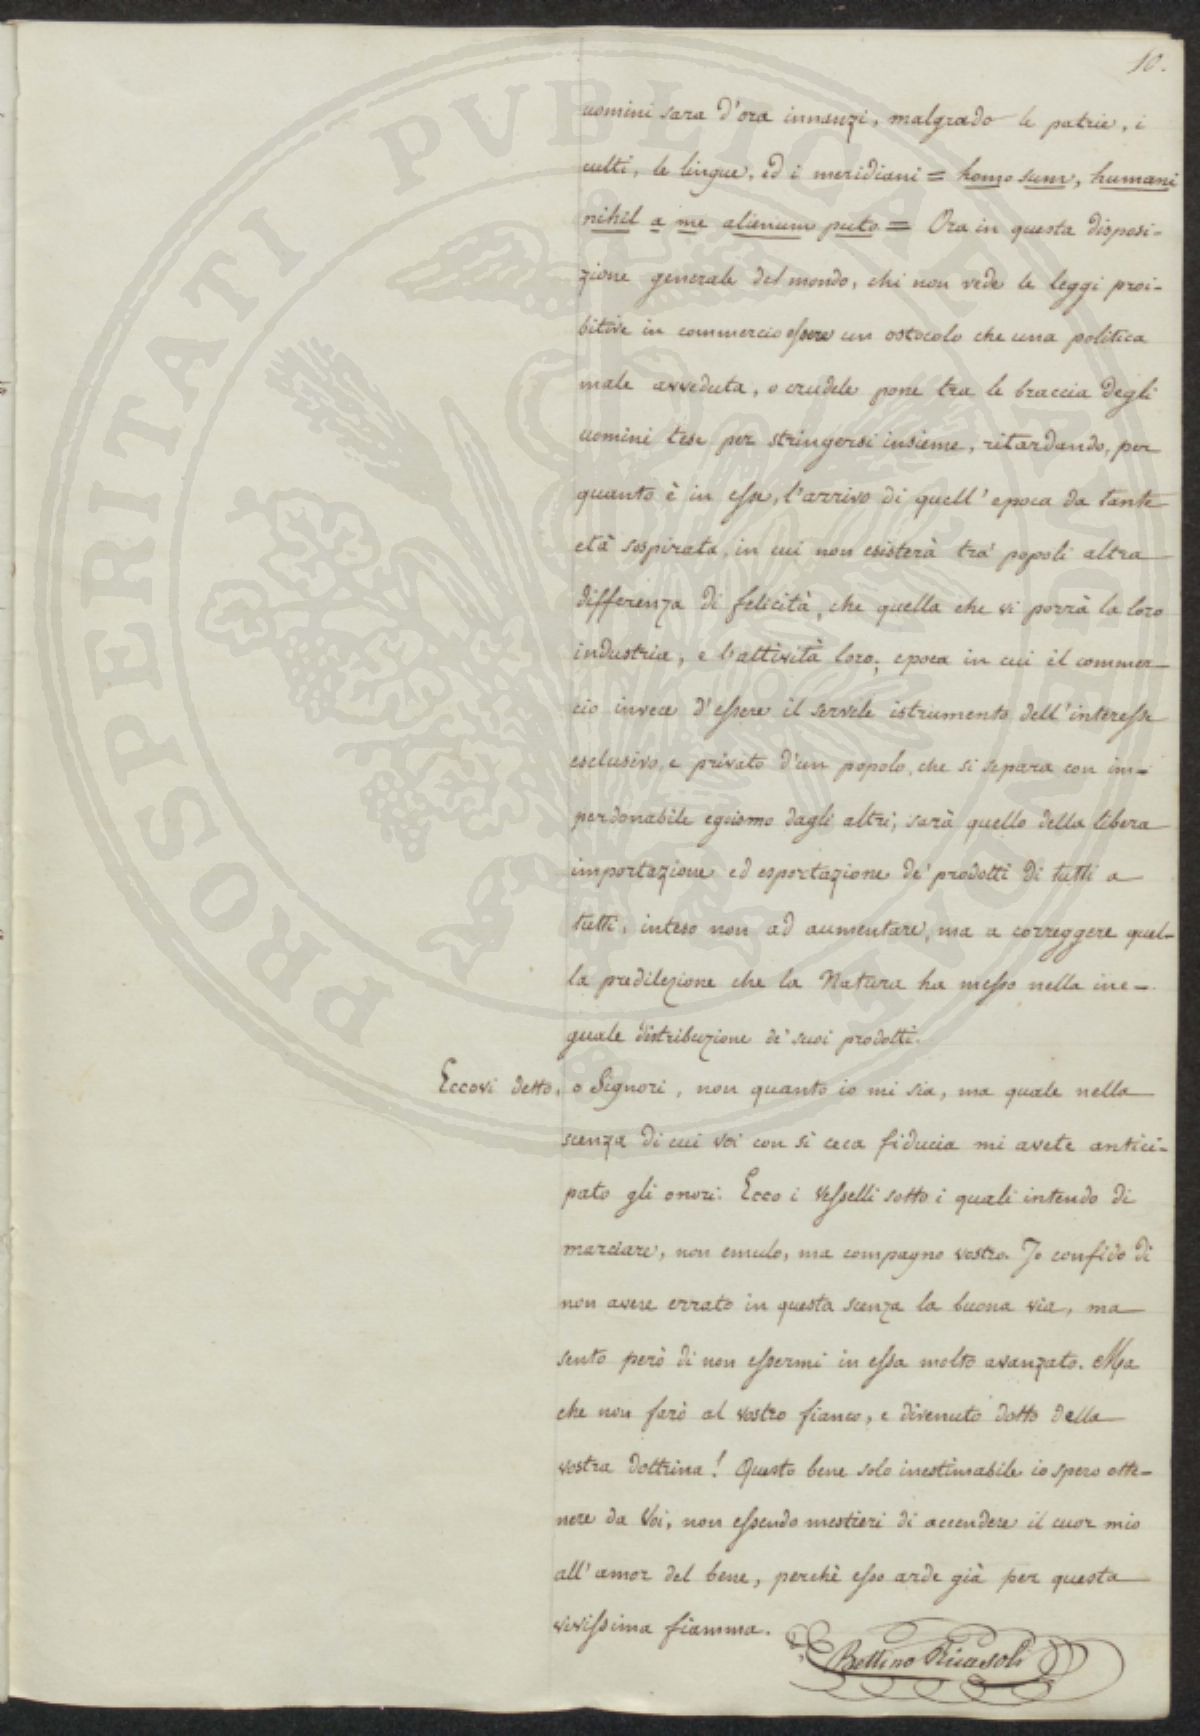 10.
uomini sara d'ora innanzi, malgrado le patrie, i
culti, le lingue, ed i meridiani = homo sum, humani
nihil a me alienum puto = Ora in questa disposi-
zione generale del mondo, chi non vede le leggi proi-
bitive in commercio essere un ostocolo che una politica
male avveduta, o crudele pone tra le braccia degli
uomini tese per stringersi insieme, ritardando, per
quanto è in esse, l'arrivo di quell'epoca da tante
età sospirata, in cui non esisterà tra' popoli altra
differenza di felicità, che quella che vi porrà la loro
industria, e l'attività loro; epoca in cui il commer-
cio invece d'essere il servile istrumento dell'interesse
esclusivo, e privato d'un popolo, che si separa con im-
perdonabile egoismo dagli altri, sarà quello della libera
importazione ed esportazione de' prodotti di tutti a
tutti, inteso non ad aumentare, ma a correggere quel-
la predilezione che la Natura ha messo nella ine-
guale distribuzione de' suoi prodotti.
Eccovi detto, o Signori, non quanto io mi sia, ma quale nella
scenza di cui voi con sì ceca fiducia mi avete antici-
pato gli onori. Ecco i Vesselli sotto i quali intendo di
marciare, non emulo, ma compagno vostro. Io confido di
non avere errato in questa scenza la buona via, ma
sento però di non essermi in essa molto avanzato. Ma
che non farò al vostro fianco, e divenuto dotto della
vostra dottrina! Questo bene solo inestimabile io spero otte-
nere da Voi, non essendo mestieri di accendere il cuor mio
all'amor del bene, perchè esso arde già per questa
vivissima fiamma.
Bettino Ricasoli
PROSPERITATI PUBLICAE AUGENDAE